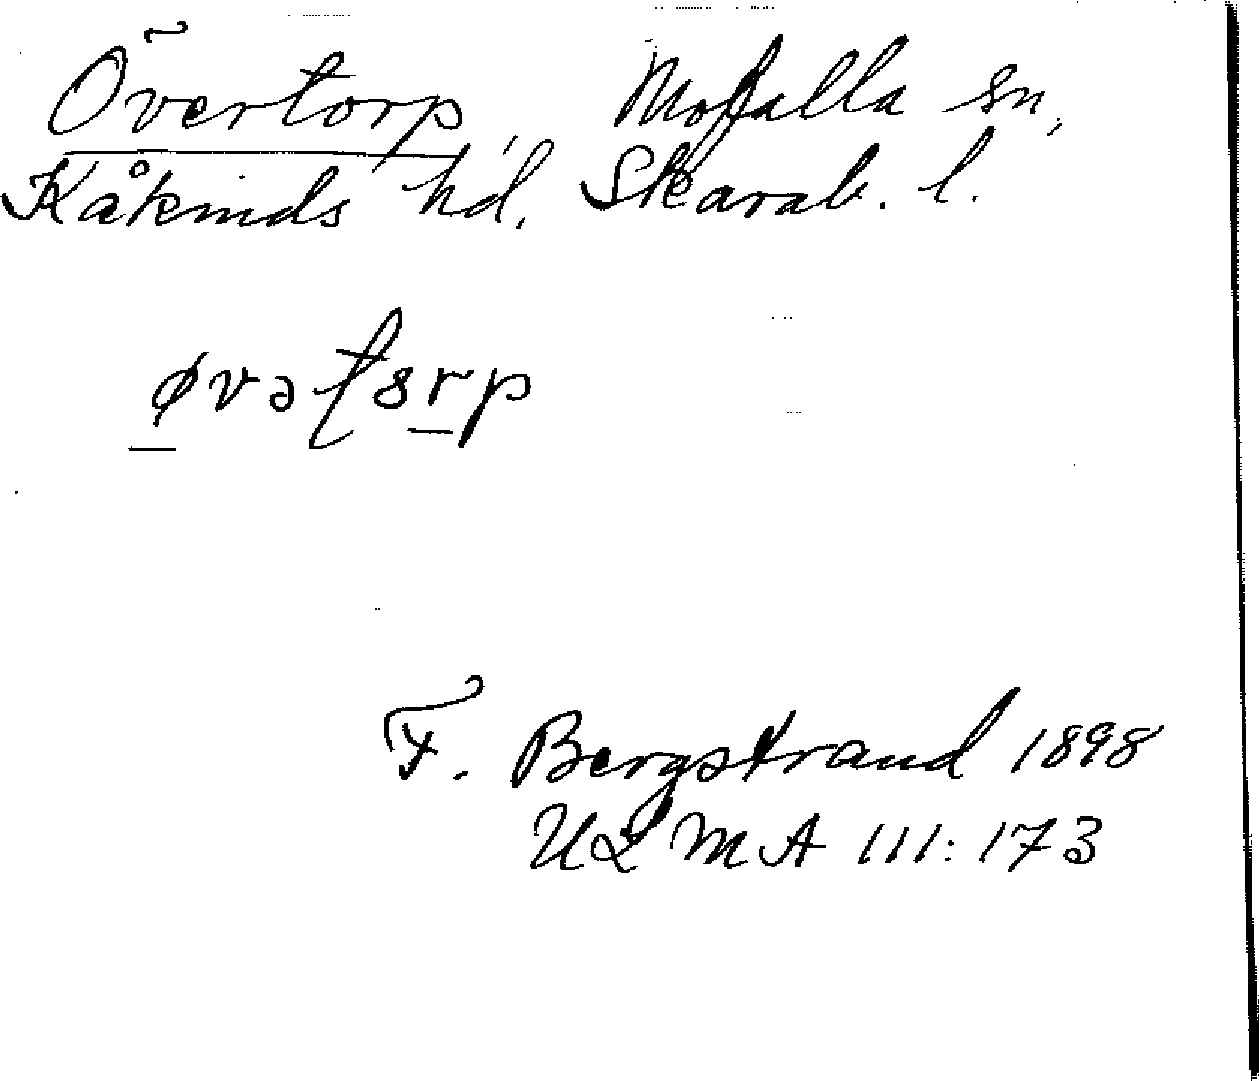 Övertorp, Mofalla sn,
Kåkinds hd, Skarab. l.
øvəʈsrp
F. Bergstrand 1898
ULMA 111:173